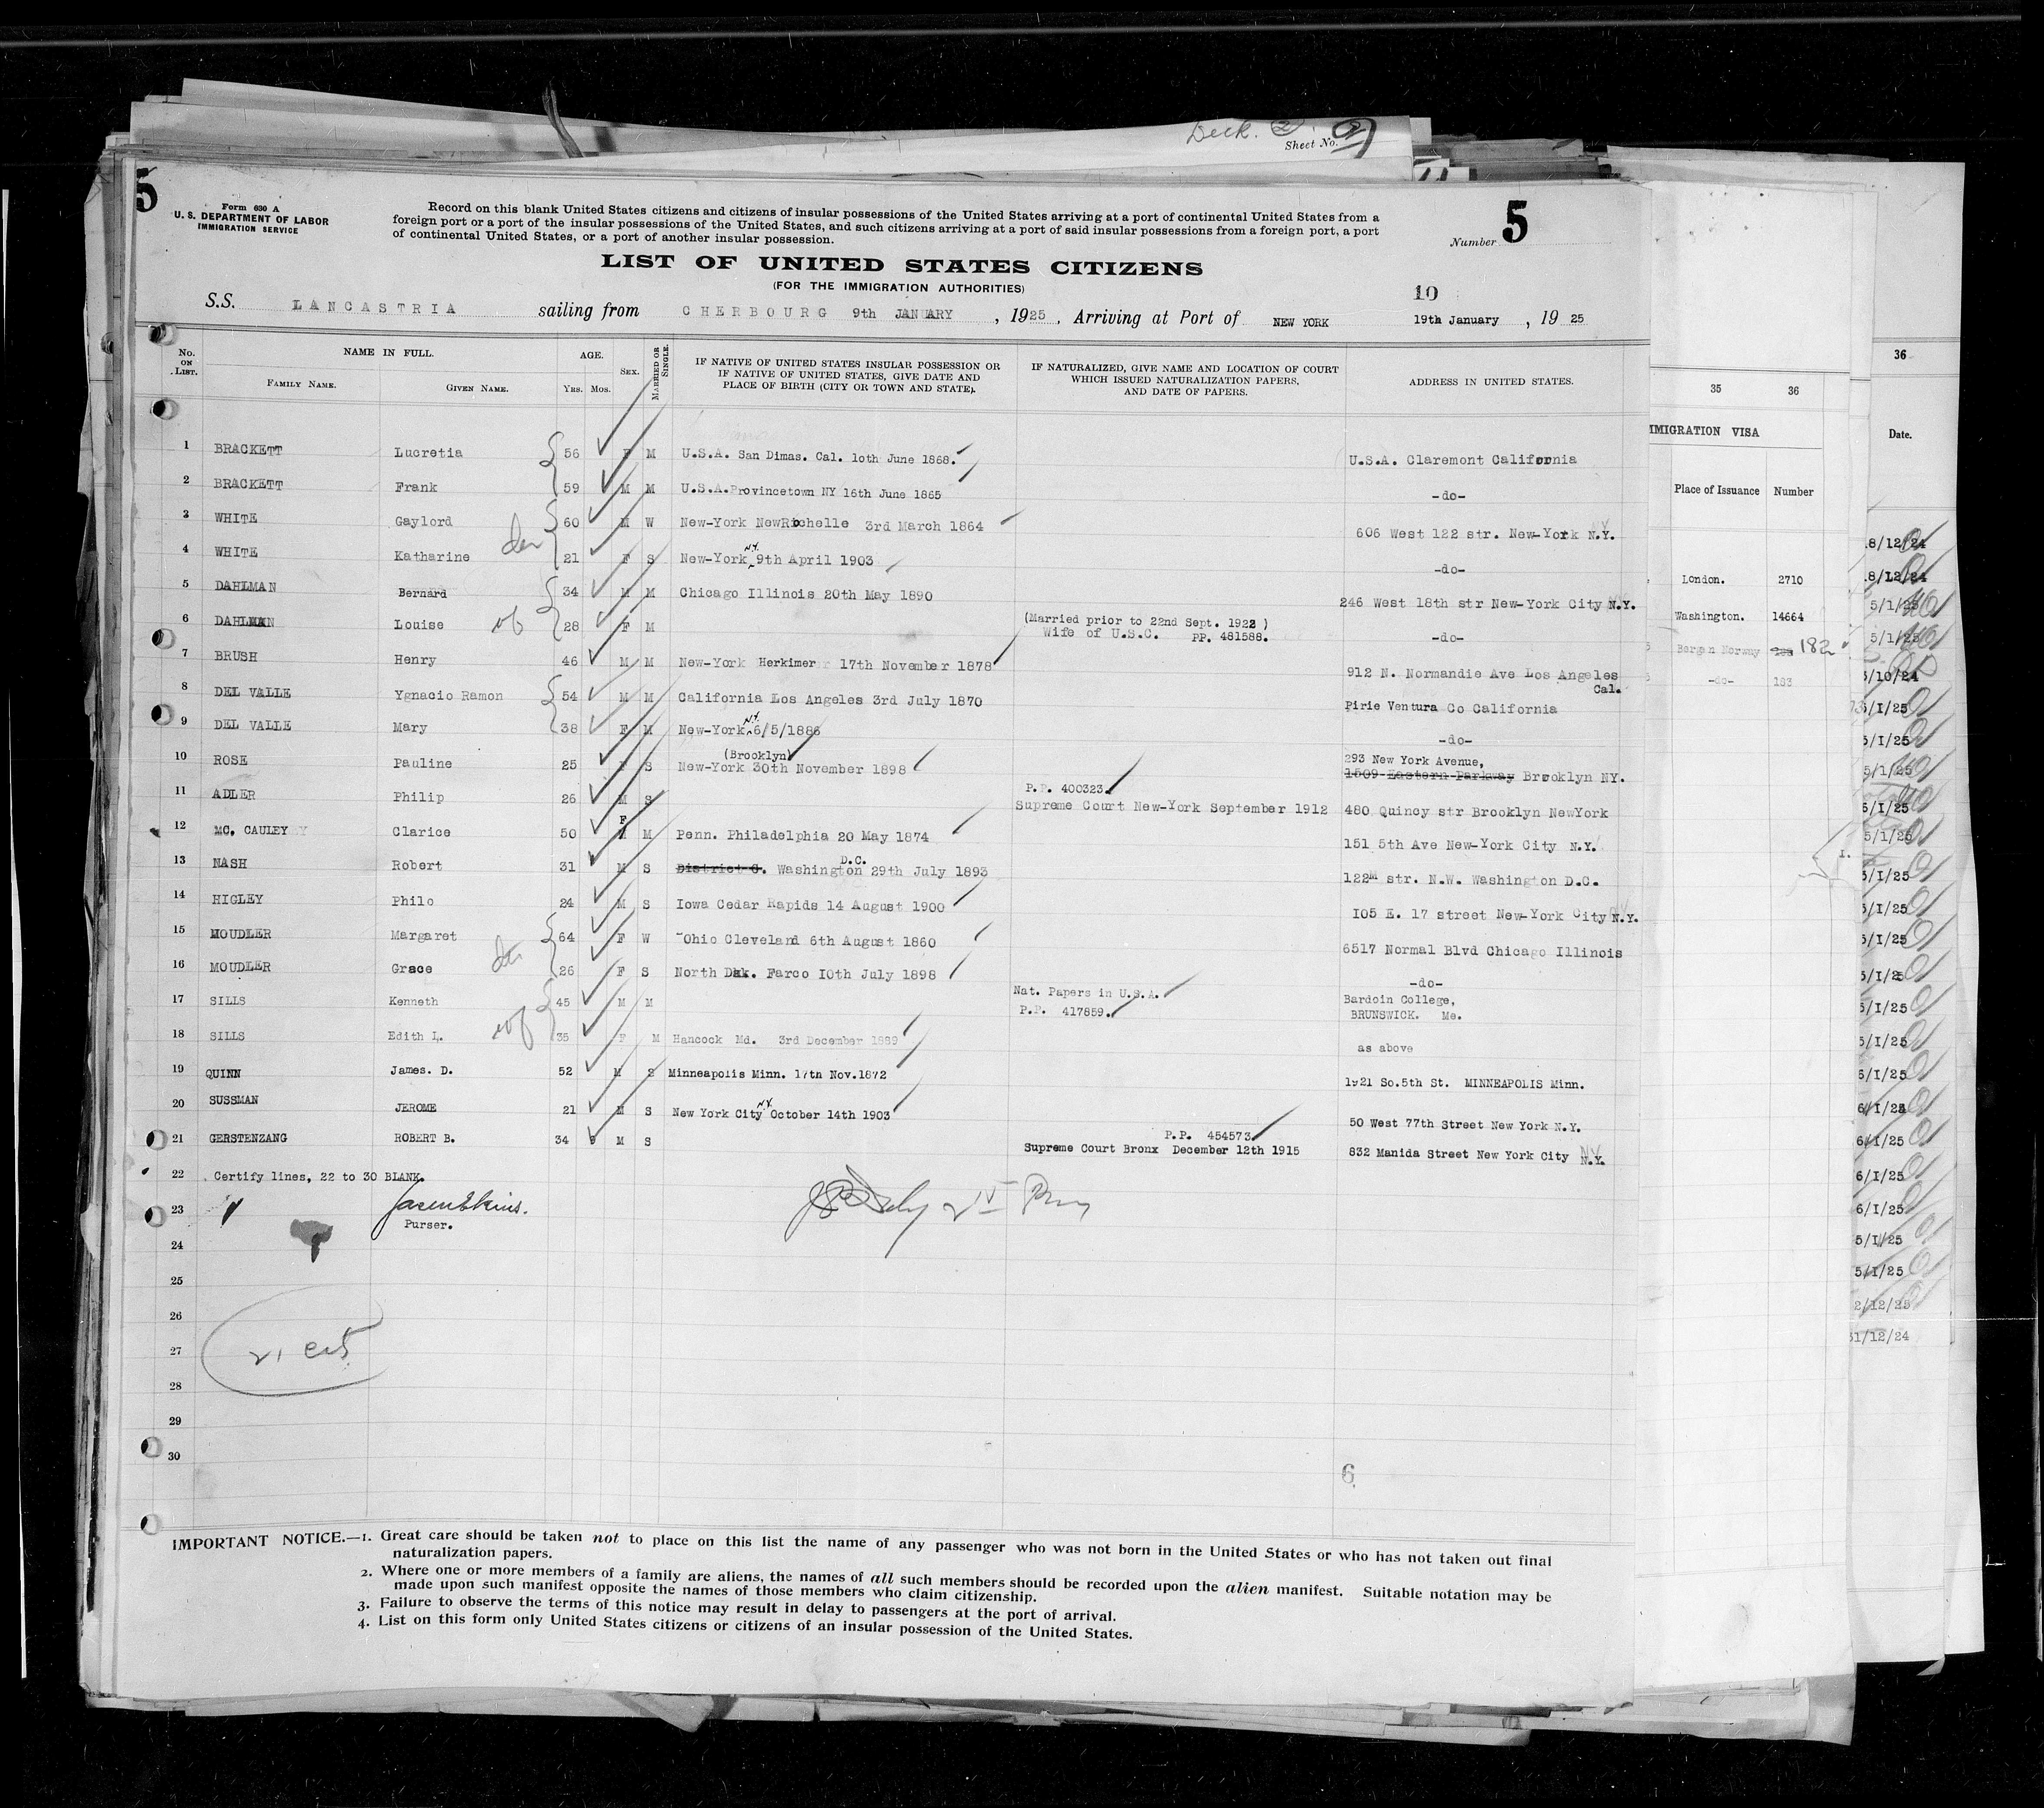 Deck. 2
Sheet No. 9
5
Form 630 A
U. S. DEPARTMENT OF LABOR
IMMIGRATION SERVICE
Record on this blank United States citizens and citizens of insular possessions of the United States arriving at a port of continental United States from a
foreign port or a port of the insular possessions of the United States, and such citizens arriving at a port of said insular possessions from a foreign port, a port
of continental United States, or a port of another insular possession.
Number 5
LIST OF UNITED STATES CITIZENS
(FOR THE IMMIGRATION AUTHORITIES)
10
S.S. LANCASTRIA sailing from CHERBOURG 9th JANUARY, 1925, Arriving at Port of NEW YORK 19th January, 1925
No. ON LIST. NAME IN FULL. AGE. SEX. MARRIED OR SINGLE. IF NATIVE OF UNITED STATES INSULAR POSSESSION OR IF NATIVE OF UNITED STATES, GIVE DATE AND PLACE OF BIRTH (CITY OR TOWN AND STATE). IF NATURALIZED, GIVE NAME AND LOCATION OF COURT WHICH ISSUED NATURALIZATION PAPERS, AND DATE OF PAPERS. ADDRESS IN UNITED STATES.
FAMILY NAME. GIVEN NAME. YRS. MOS.
1 BRACKETT Lucretia 56 F M U.S.A. San Dimas. Cal. 10th June 1868. U.S.A. Claremont California
2 BRACKETT Frank 59 M M U.S.A. Provincetown NY 16th June 1865 -do-
3 WHITE Gaylord 60 M W New-York NewRochelle 3rd March 1864 606 West 122 str. New-York N.Y.
4 WHITE Katharine 21 F S New-York N.Y. 9th April 1903 -do-
5 DAHLMAN Bernard 34 M M Chicago Illinois 20th May 1890 246 West 18th str New-York City N.Y.
6 DAHLMAN Louise wf 28 F M (Married prior to 22nd Sept. 1922 )
Wife of U.S.C. PP. 481588. -do-
7 BRUSH Henry 46 M M New-York Herkimer 17th November 1878 912 N. Normandie Ave Los Angeles
Cal.
8 DEL VALLE Ygnacio Ramon 54 M M California Los Angeles 3rd July 1870 Pirie Ventura Co California
9 DEL VALLE Mary 38 F M New-York N.Y. 6/5/1886 -do-
10 ROSE Pauline 25 F S New-York (Brooklyn) 30th November 1898 293 New York Avenue,
1509 Eastern Parkway Brooklyn NY.
11 ADLER Philip 26 M S P.P. 400323.
Supreme Court New-York September 1912 480 Quincy str Brooklyn NewYork
12 MC. CAULEY Clarice 50 F M Penn. Philadelphia 20 May 1874 151 5th Ave New-York City N.Y.
13 NASH Robert 31 M S District C. Washington D.C. 29th July 1893 122 str. N.W. Washington D.C.
14 HIGLEY Philo 24 M S Iowa Cedar Rapids 14 August 1900 105 E. 17 street New-York City N.Y.
15 MOUDLER Margaret 64 F W Ohio Cleveland 6th August 1860 6517 Normal Blvd Chicago Illinois
16 MOUDLER Grace 26 F S North Dak. Farco 10th July 1898 -do-
17 SILLS Kenneth 45 M M Nat. Papers in U.S.A.
P.P. 417859. Bardoin College,
BRUNSWICK. Me.
18 SILLS Edith L. wf 35 F M Hancock Md. 3rd December 1889 as above
19 QUINN James. D. 52 M S Minneapolis Minn. 17th Nov.1872 1921 So.5th St. MINNEAPOLIS Minn.
20 SUSSMAN JEROME 21 M S New York City N.Y. October 14th 1903 50 West 77th Street New York N.Y.
21 GERSTENZANG ROBERT B. 34 9 M S P.P. 454573
Supreme Court Bronx December 12th 1915 832 Manida Street New York City N.Y.
22 Certify lines, 22 to 30 BLANK.
23
Purser.
24
25
26
27
28
29
30
6
IMPORTANT NOTICE.—1. Great care should be taken not to place on this list the name of any passenger who was not born in the United States or who has not taken out final
naturalization papers.
2. Where one or more members of a family are aliens, the names of all such members should be recorded upon the alien manifest. Suitable notation may be
made upon such manifest opposite the names of those members who claim citizenship.
3. Failure to observe the terms of this notice may result in delay to passengers at the port of arrival.
4. List on this form only United States citizens or citizens of an insular possession of the United States.
35 36
IMMIGRATION VISA
Place of Issuance Number
London. 2710
Washington. 14664
Bergen Norway 182
-do- 183
36
Date.
18/12/24
18/12/24
5/1/25
5/1/25
5/10/24
5/1/25
5/1/25
5/1/25
5/1/25
5/1/25
5/1/25
5/1/25
5/1/25
5/1/25
5/1/25
5/1/25
6/1/25
6/1/25
6/1/25
6/1/25
6/1/25
5/1/25
5/1/25
2/12/25
31/12/24